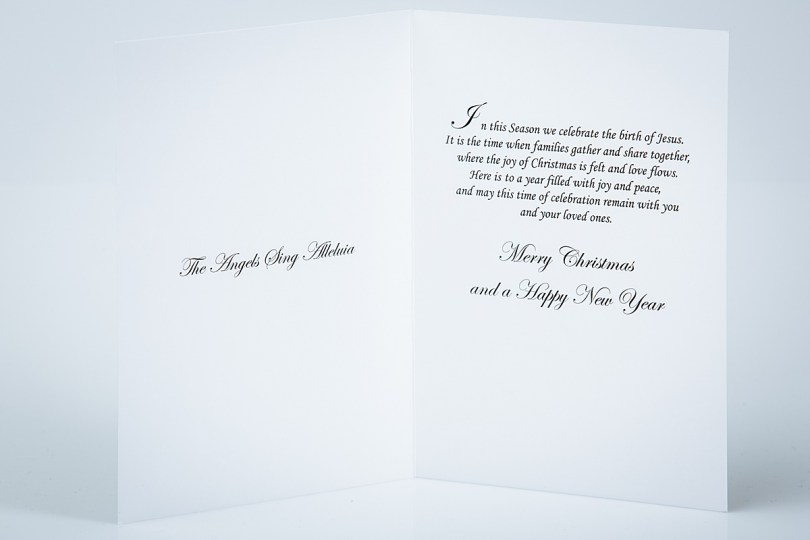 The Angels Sing Alleluia
In this Season we celebrate the birth of Jesus.
It is the time when families gather and share together,
where the joy of Christmas is felt and love flows.
Here is to a year filled with joy and peace,
and may this time of celebration remain with you
and your loved ones.
Merry Christmas
and a Happy New Year